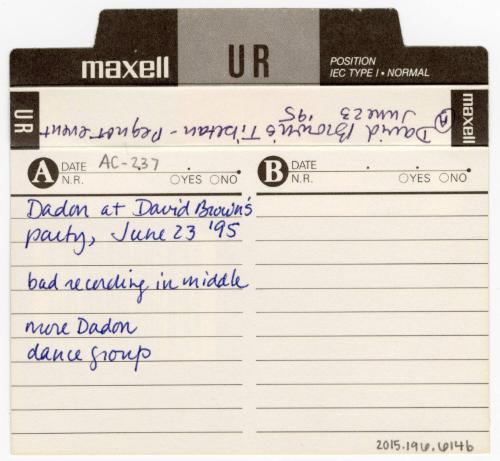 maxell
UR
POSITION
IEC TYPE I • NORMAL
UR
David Brown's Tibetan - Pequot event
(A) June 23 '95
maxell
A DATE AC-237
N.R. ○YES ○NO
B DATE
N.R. ○YES ○NO
Dadon at David Brown's
party, June 23 '95
bad recording in middle
more Dadon
dance group
2015.196.614b